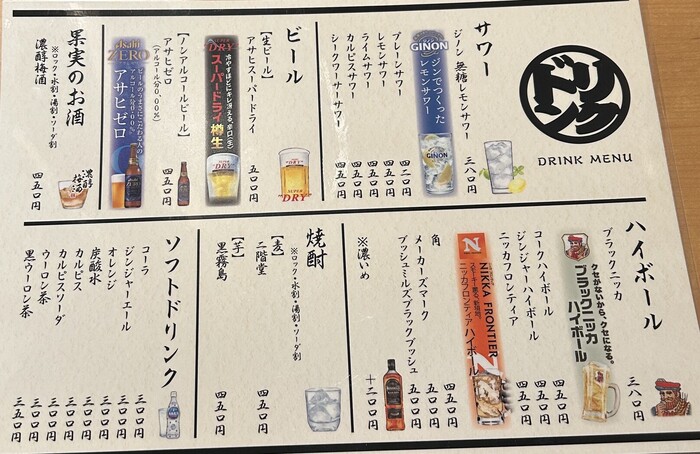 ドリンク
DRINK MENU
サワー
ジノン 無糖レモンサワー 三八〇円
GINON
ジンでつくった
レモンサワー
GINON
プレーンサワー 四二〇円
レモンサワー 四五〇円
ライムサワー 四五〇円
カルピスサワー 四五〇円
シークワーサーサワー 四五〇円
ビール
【生ビール】
アサヒスーパードライ 五〇〇円
SUPER DRY
冷やすほどにキレ冴える、辛口〈生〉
スーパードライ樽生
【ノンアルコールビール】
アサヒゼロ 四五〇円
(アルコール分0.00%)
Asahi
ZERO
アサヒゼロ
果実のお酒
※ロック・水割・湯割・ソーダ割
濃醇梅酒 四五〇円
濃醇梅酒
ハイボール
ブラックニッカ 三八〇円
クセがないから、クセになる。
ブラックニッカ
ハイボール
コークハイボール 四五〇円
ジンジャーハイボール 四五〇円
ニッカフロンティア
N
NIKKA FRONTIER
ニッカフロンティアハイボール
角
メーカーズマーク
ブッシュミルズブラックブッシュ
※濃いめ 十二〇〇円
焼酎
※ロック・水割・湯割・ソーダ割
【麦】
二階堂 四五〇円
【芋】
黒霧島 四五〇円
ソフトドリンク
コーラ 三〇〇円
ジンジャーエール 三〇〇円
オレンジ 三〇〇円
炭酸水 三〇〇円
カルピス 三〇〇円
カルピスソーダ 三〇〇円
ウーロン茶 三〇〇円
黒ウーロン茶 三五〇円